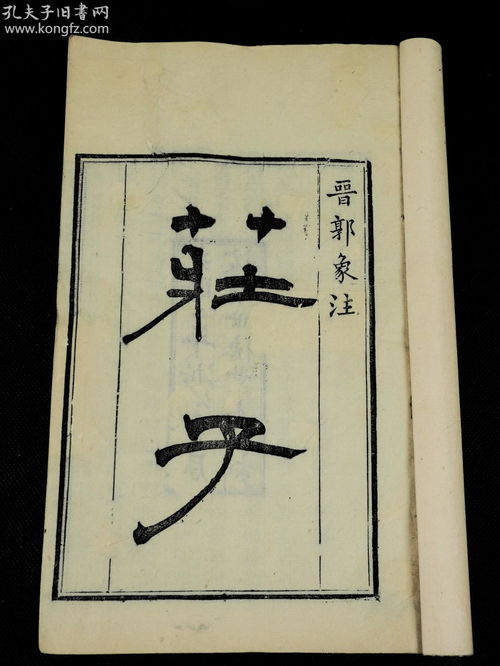 孔夫子旧书网
www.kongfz.com
晉郭象注
莊子